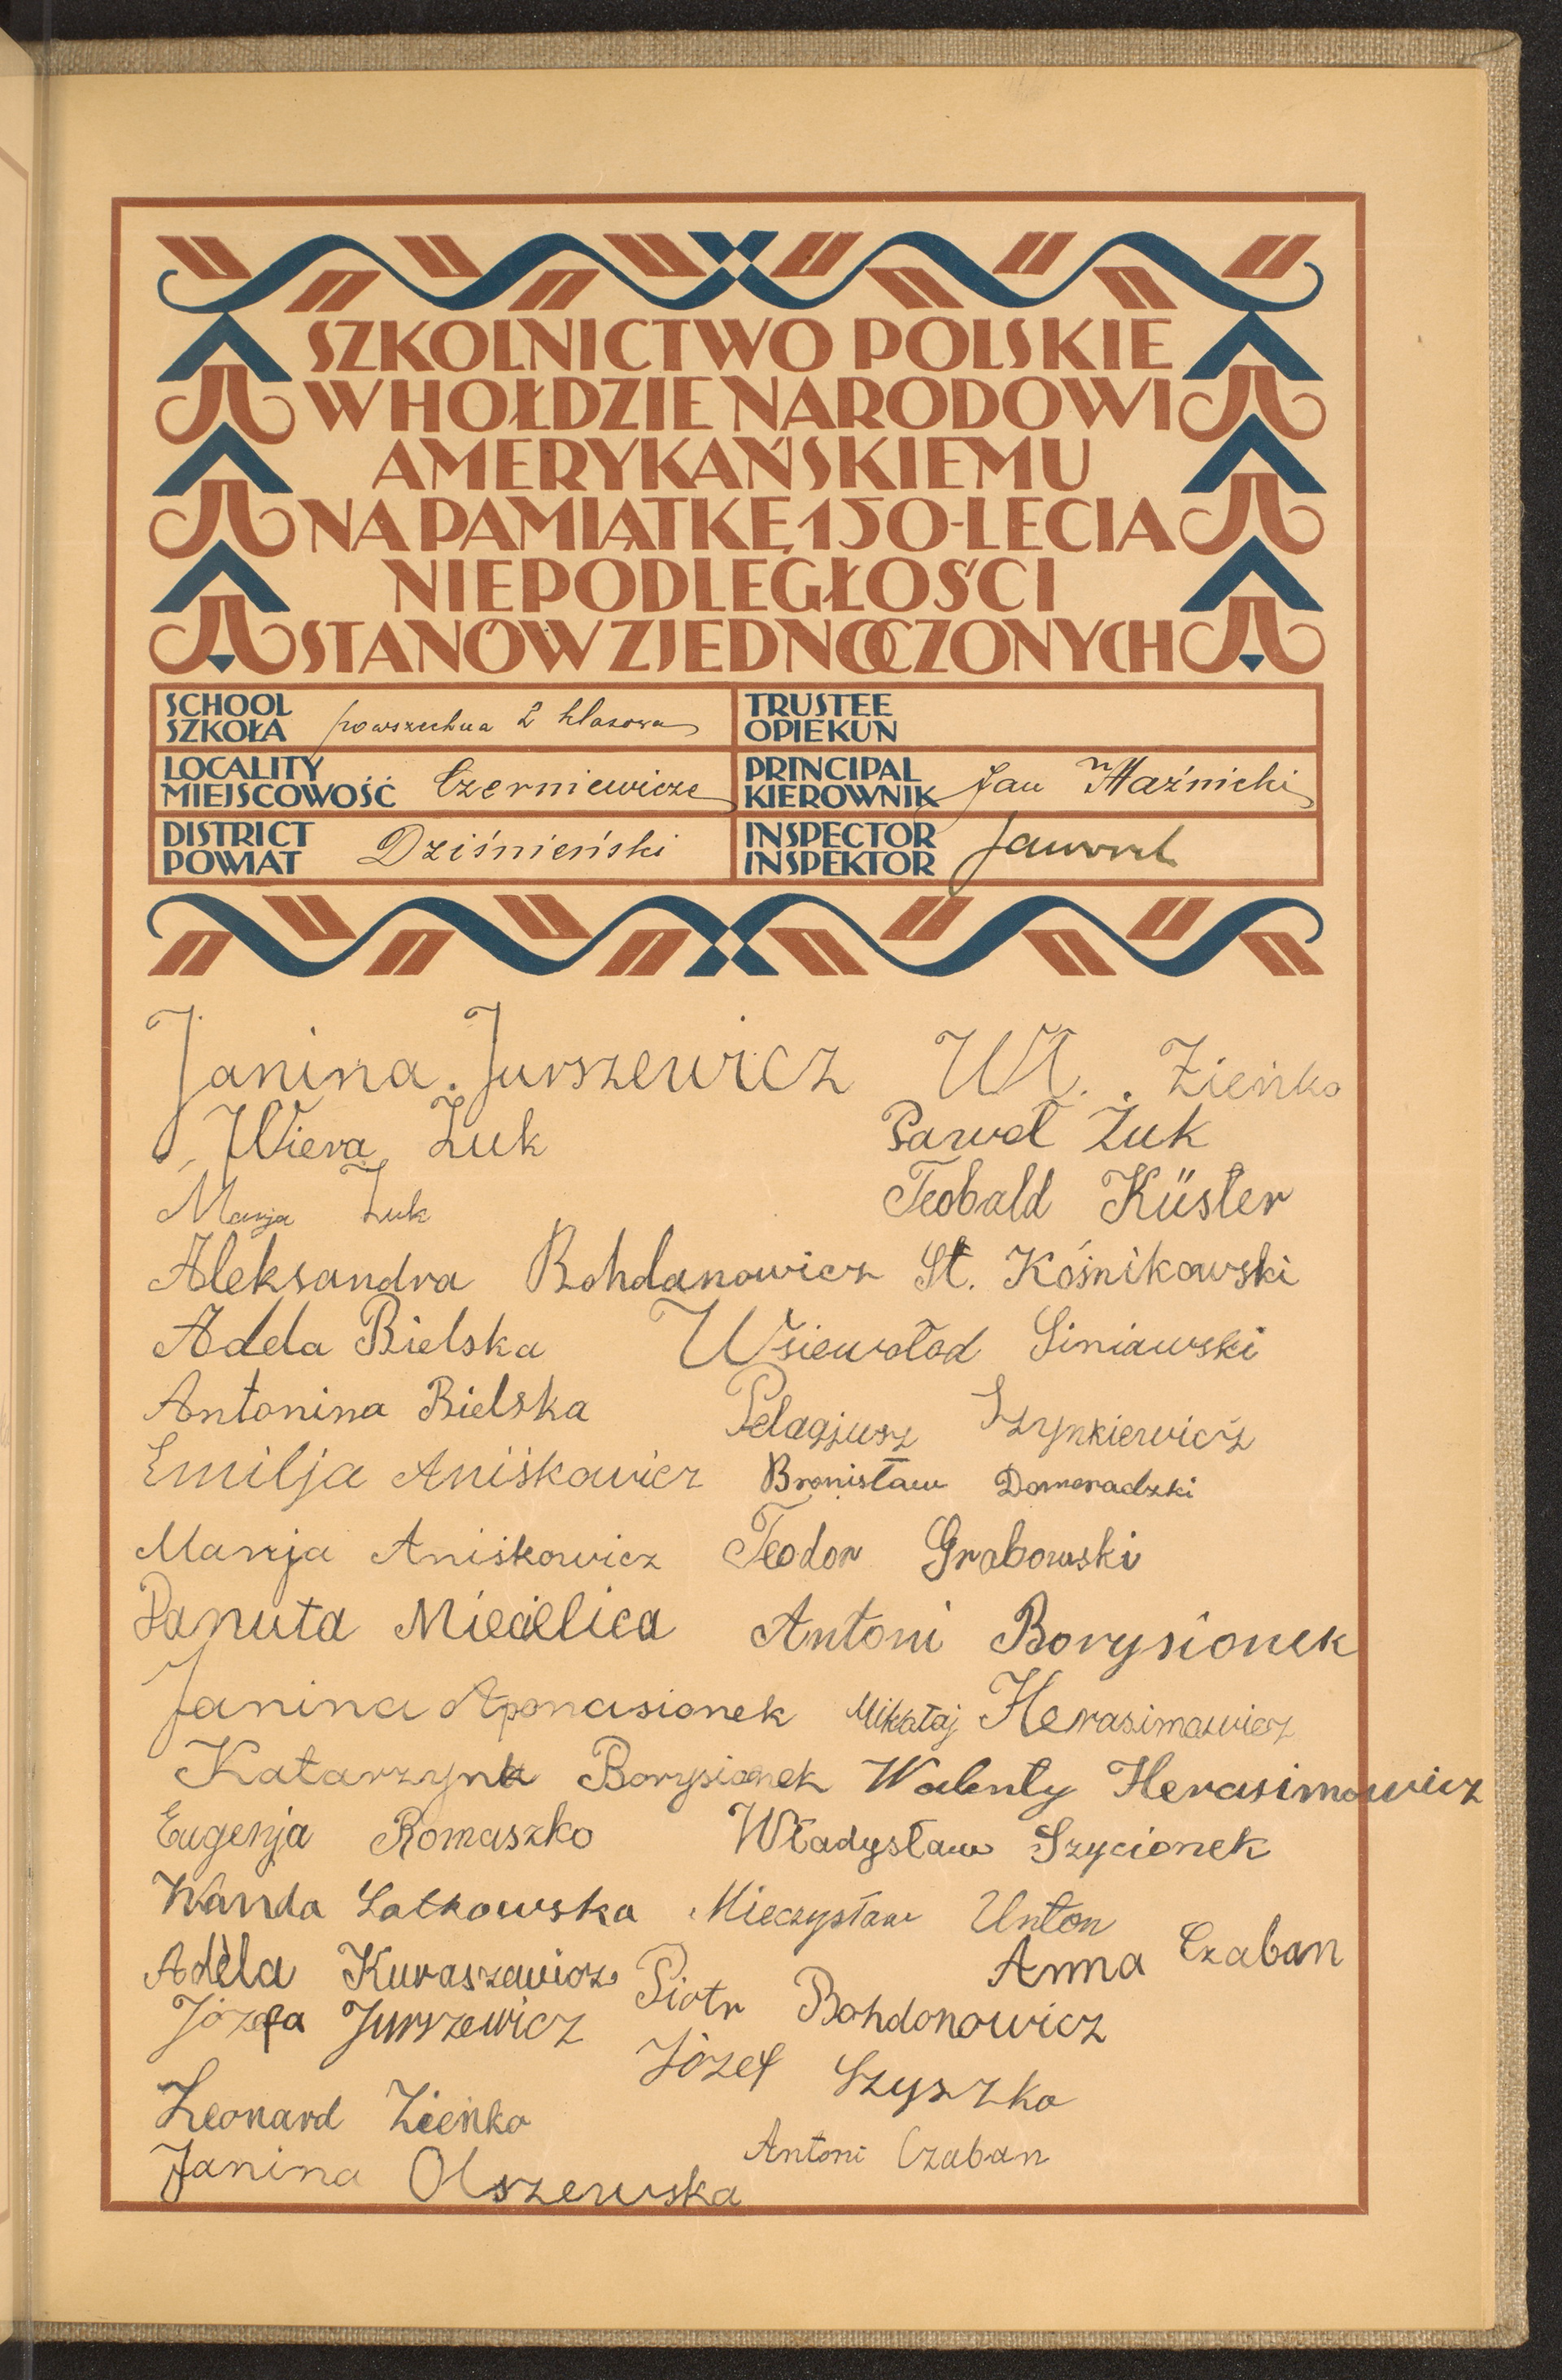 SZKOLNICTWO POLSKIE
W HOŁDZIE NARODOWI
AMERYKAŃSKIEMU
NA PAMIĄTKĘ 150-LECIA
NIEPODLEGŁOŚCI
STANÓW ZJEDNOCZONYCH
SCHOOL
SZKOŁA powszechna 2 klasowa
TRUSTEE
OPIEKUN
LOCALITY
MIEJSCOWOŚĆ Czerniewicze
PRINCIPAL
KIEROWNIK Jan
DISTRICT
POWIAT Dziśnieński
INSPECTOR
INSPEKTOR
Janina Jurszewicz Wł. Zieńko
Wiera Żuk Paweł Żuk
Marja Żuk Teobald Küster
Aleksandra Bohdanowicz St. Kośnikowski
Adela Bielska Wsiewołod Siniawski
Antonina Bielska Pelagjusz Szynkiewicz
Emilja Aniśkowicz Bronisław Domoradzki
Marija Aniśkowicz Teodor Grabowski
Danuta Miecielica Antoni Borysionek
Janina Aponasionek Mikołaj Herasimowicz
Katarzyna Borysionek Walenty Herasimowicz
Eugenja Romaszko Władysław Szycionek
Wanda Łatkowska Mieczysław Unton
Adela Kuraszewicz Piotr Bohdonowicz Anna Czaban
Józefa Jurszewicz Józef Szyszko
Leonard Zieńko
Antoni Czaban
Janina Olszewska